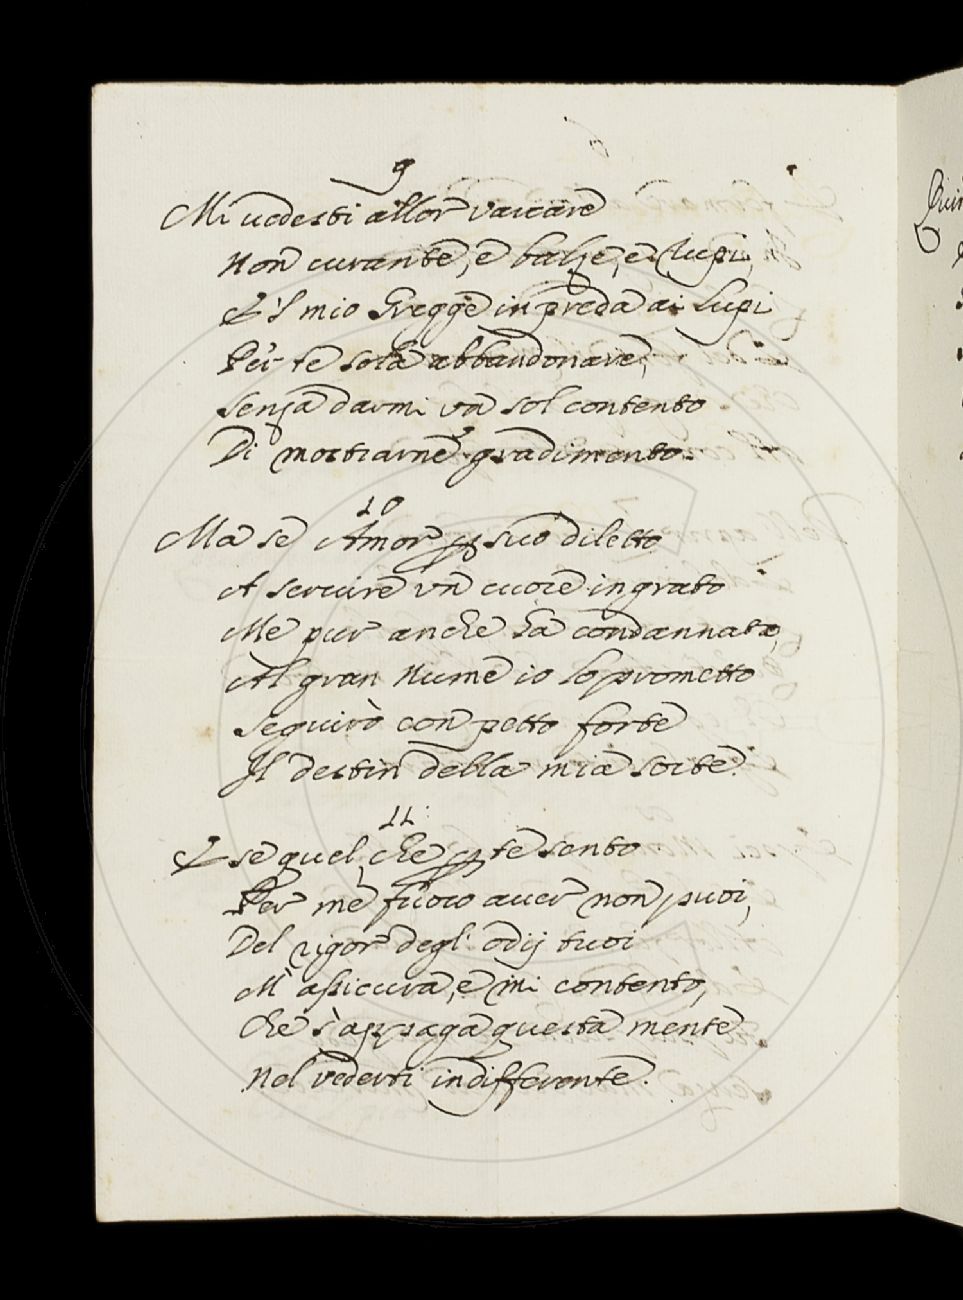 9
Mi vedesti allor varcare
Non curante, e balze, e Rupi,
E 'l mio Gregge in preda ai Lupi
Per te sola abbandonare,
Senza darmi un sol contento
Di mostrarne gradimento.
10
Ma se Amor p suo diletto
A servire un cuore ingrato
Me pur anche ha condannato,
Al gran Nume io lo prometto
Seguirò con petto forte
Il destin della mia sorte.
11.
E se quel, che p te sento
Per me fuoco aver non puoi,
Del rigor degl' odij tuoi
M' assicura, e mi contento,
Che s'appaga questa mente
Nel vederti indifferente.